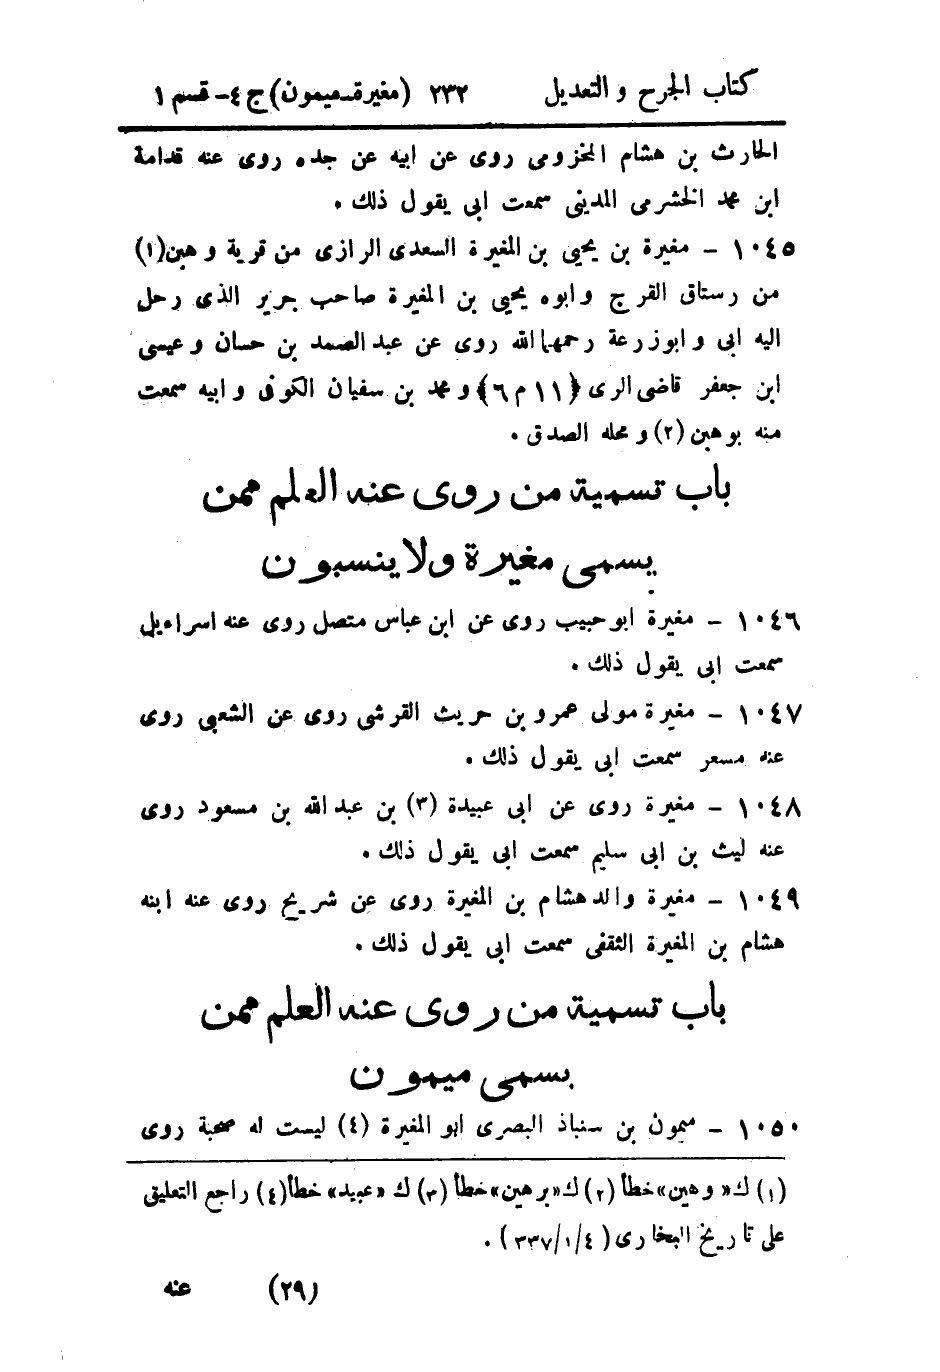 كتاب الجرح والتعديل ٢٣٢ (مغيرة-ميمون) ج ٤- قسم ١
الحارث بن هشام المخزومى روى عن ابيه عن جده روى عنه قدامة
ابن محمد الخشرمى المدينى سمعت ابى يقول ذلك .
١٠٤٥ - مغيرة بن يحيى بن المغيرة السعدى الرازى من قرية وهبن(١)
من رستاق القرج وابوه يحيى بن المغيرة صاحب جرير الذى رحل
اليه ابى وابوزرعة رحمهما الله روى عن عبد الصمد بن حسان وعيسى
ابن جعفر قاضى الرى {١١ م ٦} ومحمد بن سفيان الكوفى وابيه سمعت
منه بوهبن (٢) ومحله الصدق .
باب تسمية من روى عنه العلم ممن
يسمى مغيرة ولا ينسبون
١٠٤٦ - مغيرة ابو حبيب روى عن ابن عباس متصل روى عنه اسراءيل
سمعت ابى يقول ذلك .
١٠٤٧ - مغيرة مولى عمرو بن حريث القرشى روى عن الشعبى روى
عنه مسعر سمعت ابى يقول ذلك .
١٠٤٨ - مغيرة روى عن ابى عبيدة (٣) بن عبد الله بن مسعود روى
عنه ليث بن ابى سليم سمعت ابى يقول ذلك .
١٠٤٩ - مغيرة والد هشام بن المغيرة روى عن شريح روى عنه ابنه
هشام بن المغيرة الثقفى سمعت ابى يقول ذلك .
باب تسمية من روى عنه العلم ممن
يسمى ميمون
١٠٥٠ - ميمون بن سنباذ البصرى ابو المغيرة (٤) ليست له صحبة روى
(١) ك« وهين» خطأ (٢) ك«برهين» خطأ (٣) ك «عبيد» خطأ (٤) راجع التعليق
على تاريخ البخارى (٣٣٧/١/٤) .
(٢٩) عنه